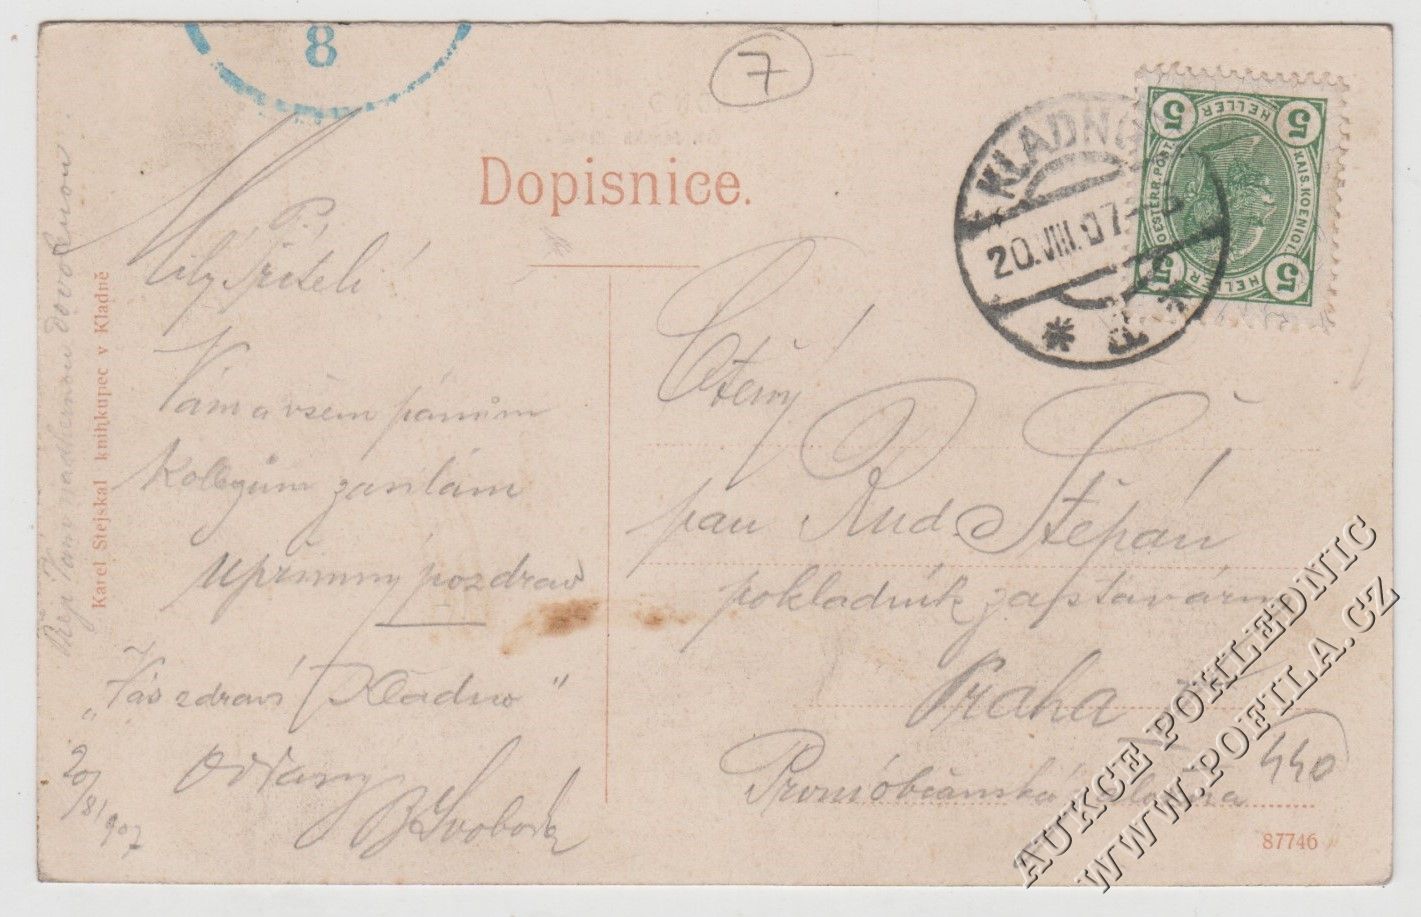 8
7
Dopisnice.
KLADNO
20.VIII.07
5 HELLER 5
KAIS.KOENIGL.
OESTERR.POST.
5 HELLER 5
Milý Příteli
Vám a všem pánům
Kolegům zasílám
upřímný pozdrav
"Vás zdraví Kladno"
oddaný
Svoboda
20/8/907
Karel Stejskal knihkupec v Kladně
Ctěný
pan Rud. Štěpán
pokladník zastavárny
Praha
První občanská záložna
440
87746
AUKCE POHLEDNIC
WWW.POFILA.CZ